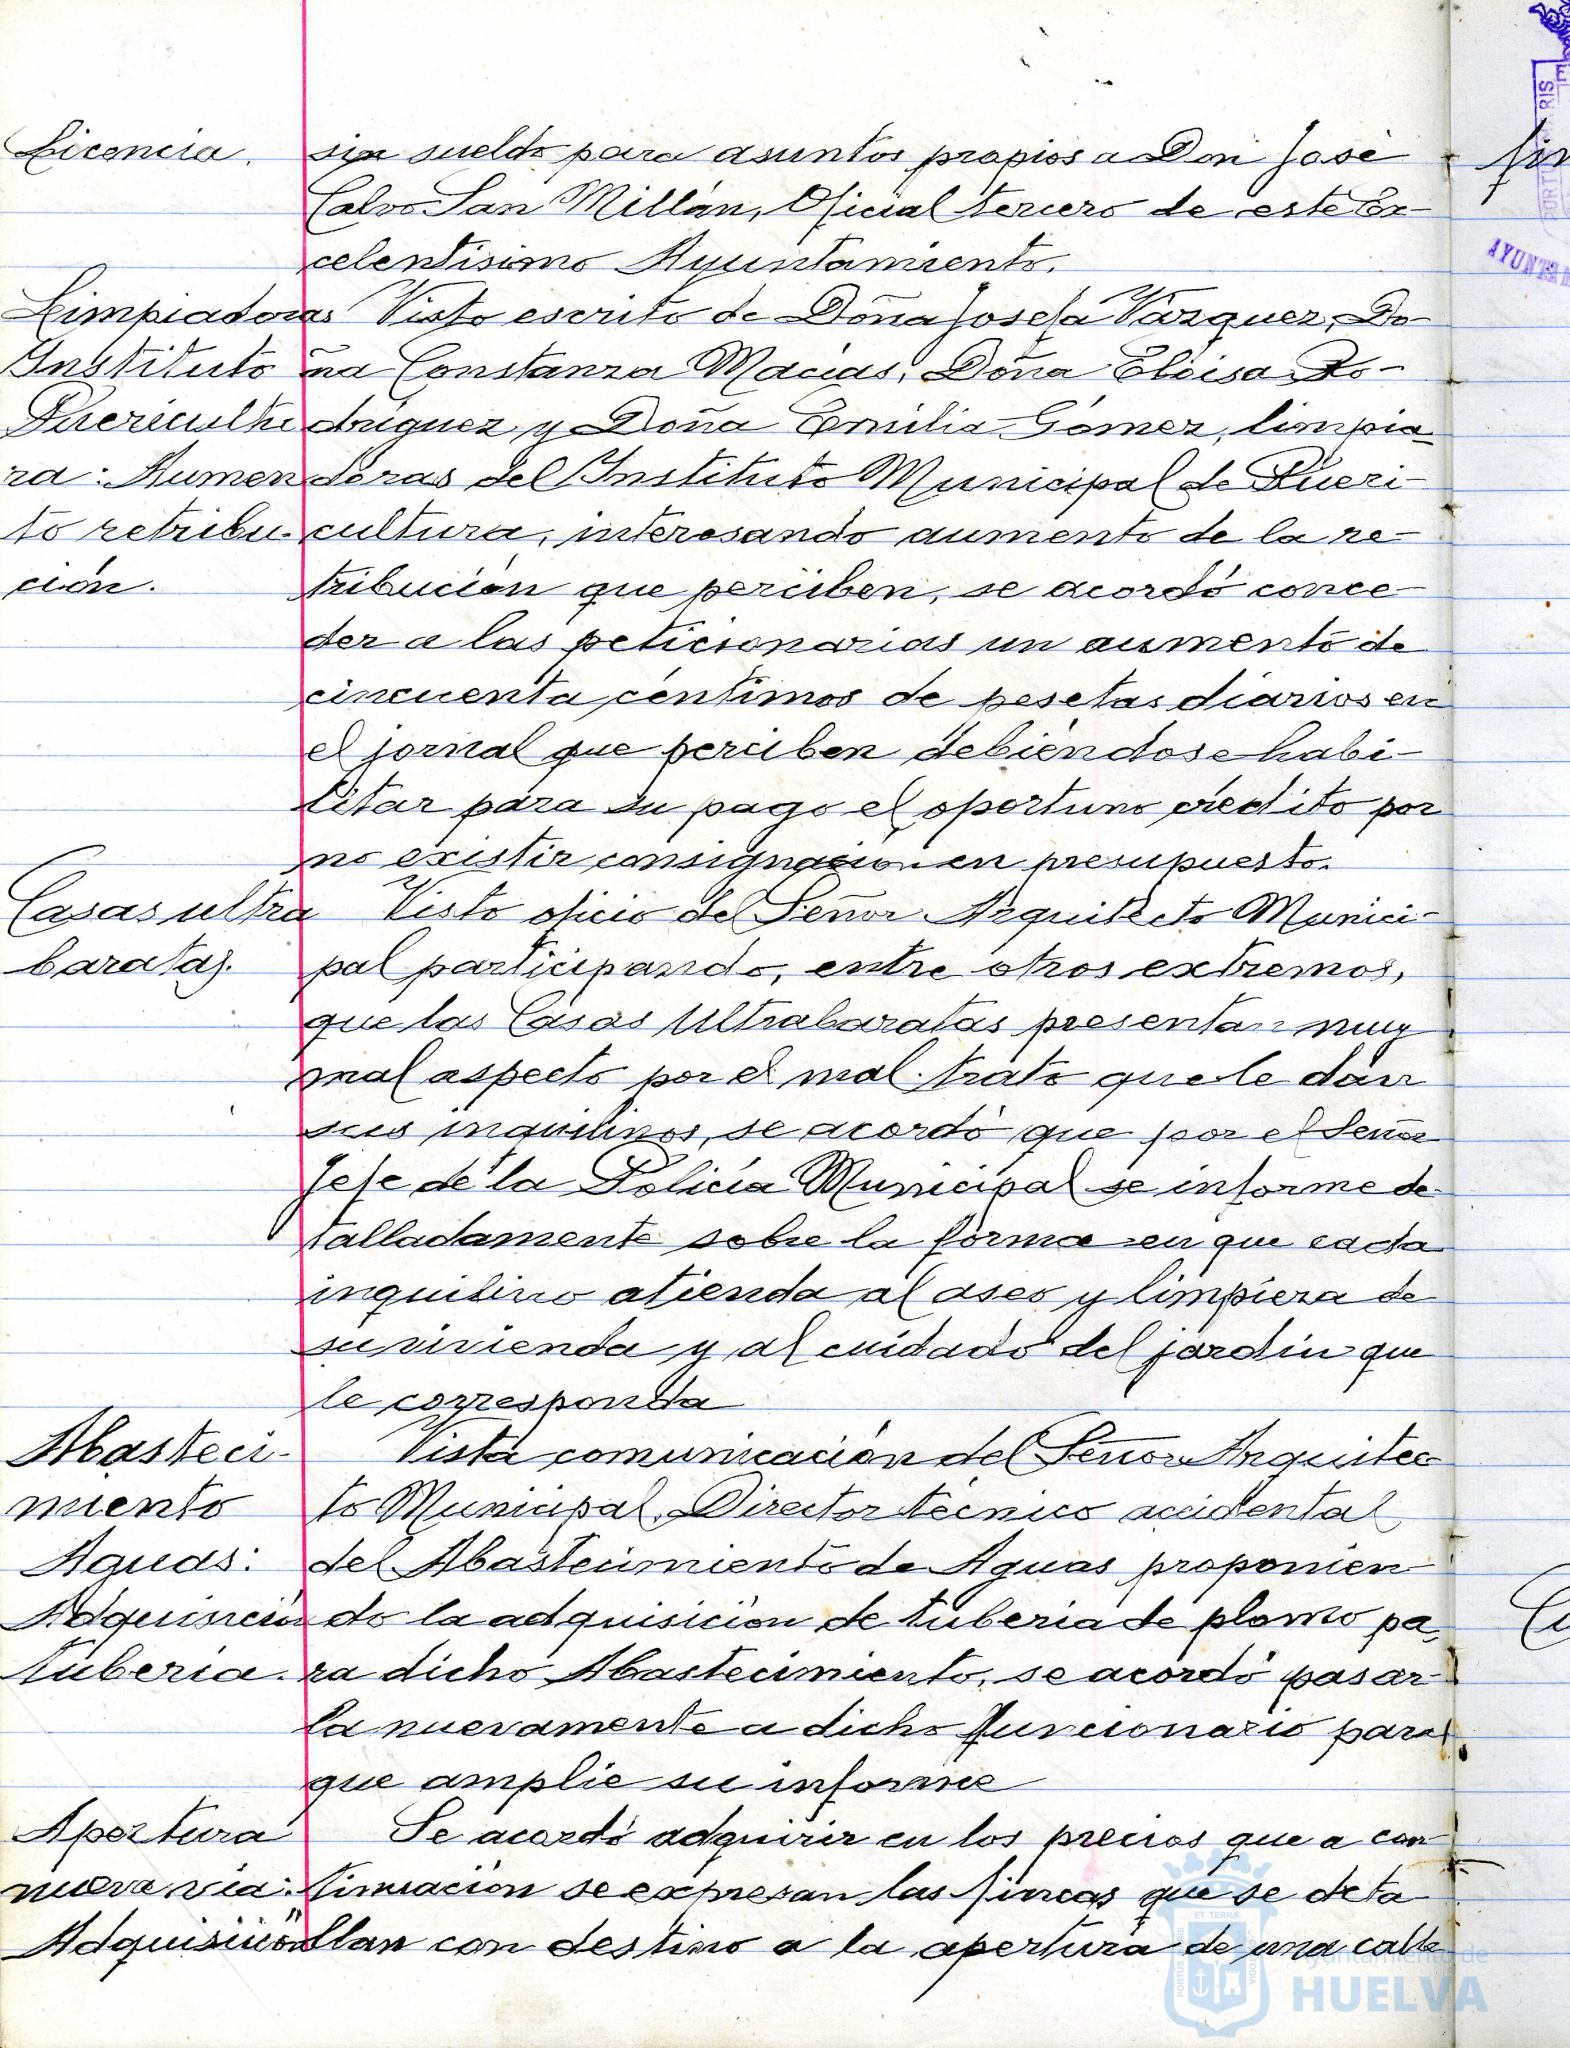 Licencia.
sin sueldo para asuntos propios a Don José
Calvo San Millán, Oficial tercero de este Ex-
celentisimo Ayuntamiento.
Limpiadoras
Instituto
Puericultu
ra: Aumen
to retribu-
ción.
Visto escrito de Doña Josefa Vazquez, Do-
ña Constanza Macias, Doña Eloisa Ro-
driguez y Doña Emilia Gómez, limpia
doras del Instituto Municipal de Pueri-
cultura, interesando aumento de la re-
tribución que perciben, se acordó conce-
der a las peticionarias un aumento de
cincuenta céntimos de pesetas diarios en
el jornal que perciben debiendose habi-
litar para su pago el oportuno crédito por
no existir consignación en presupuesto.
Casas ultra
baratas.
Visto oficio del Señor Arquitecto Munici-
pal participando, entre otros extremos,
que las Casas Ultrabaratas presentan muy
mal aspecto por el mal trato que le dan
sus inquilinos, se acordó que por el Señor
Jefe de la Policia Municipal se informe de-
talladamente sobre la forma en que cada
inquilino atienda al aseo y limpieza de
su vivienda y al cuidado del jardin que
le corresponda
Abasteci-
miento
Aguas:
Adquisición
tuberia.
Vista comunicación del Señor Arquitec
to Municipal, Director técnico accidental
del Abastecimiento de Aguas proponien
do la adquisición de tuberia de plomo pa-
ra dicho Abastecimiento, se acordó pasar
la nuevamente a dicho funcionario para
que amplie su informe
Apertura
nueva via:
Adquisición
Se acordó adquirir en los precios que a con
tinuación se expresan las fincas que se deta
llan con destino a la apertura de una calle
AYUNTAM
Ayuntamiento de
HUELVA